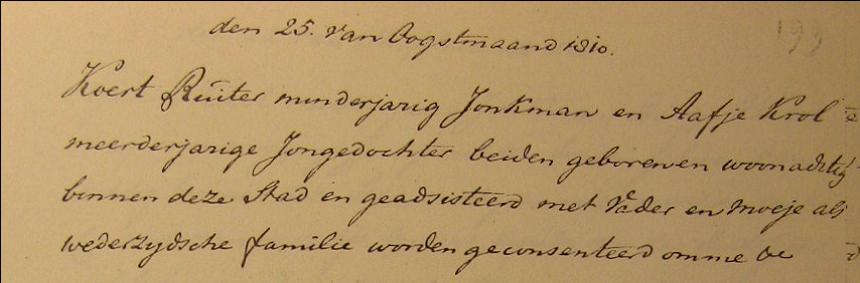 den 25. van Oogstmaand 1810.
199
Koert Ruiter minderjarig Jonkman en Aafje Krol
meerderjarige Jongedochter beiden geboren en woonachtig
binnen deze Stad en geadsisteerd met Vader en Moeje als
wederzydsche familie worden geconsenteerd omme te